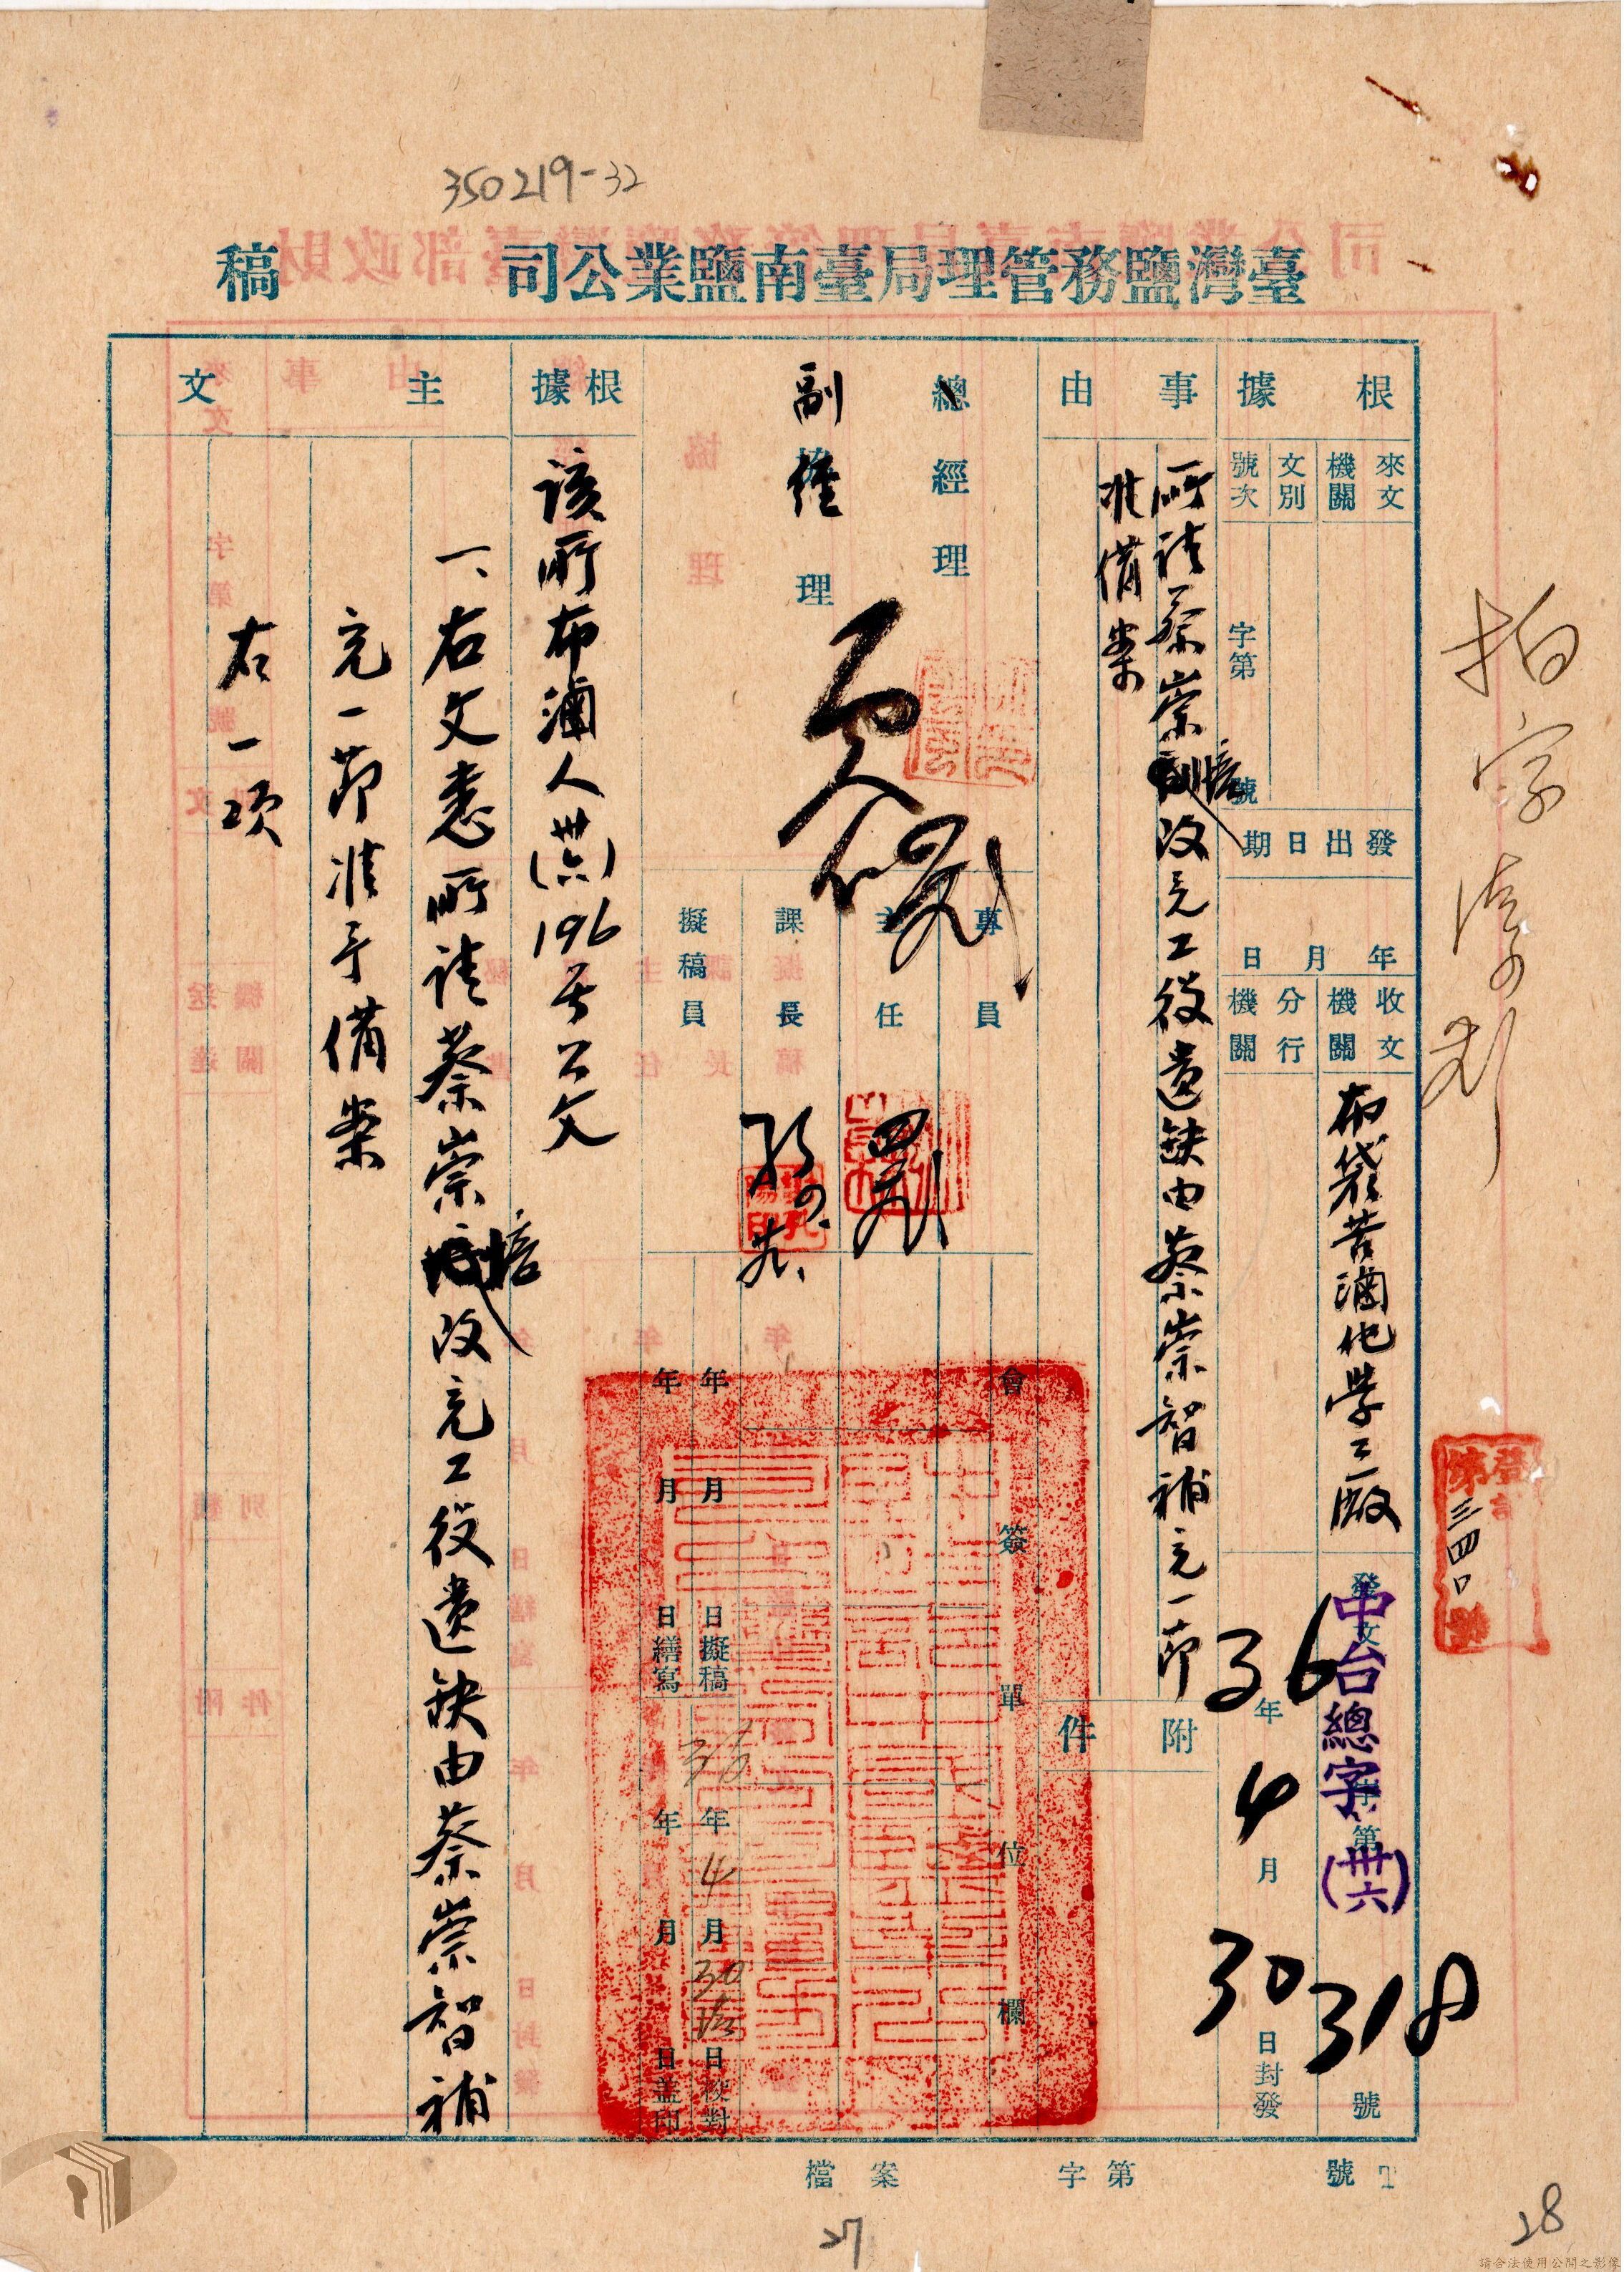 350219-32
臺灣鹽務管理局臺南鹽業公司 稿
根據
來文機關
文別
號次
字第 號
發出日期
年 月 日
收文機關
布袋苦滷化學工廠
分行機關
發文 字第 號
中台總字
(卅六)
318
36年4月30日封發
事由
所請蔡崇培改充工役遺缺由蔡崇智補充一節
准備案
附件
總經理
副經理
專員
主任
課長
擬稿員
會簽單位欄
年 月 日擬稿
36年4月30日校對
年 月 日繕寫
年 月 日蓋印
根據
該所布滷人(卅六)196号公文
主文
一、右文悉所請蔡崇培改充工役遺缺由蔡崇智補
充一節准予備案
右一項
登記
第三四〇號
檔案 字第 號
27
28
請合法使用公開之影像